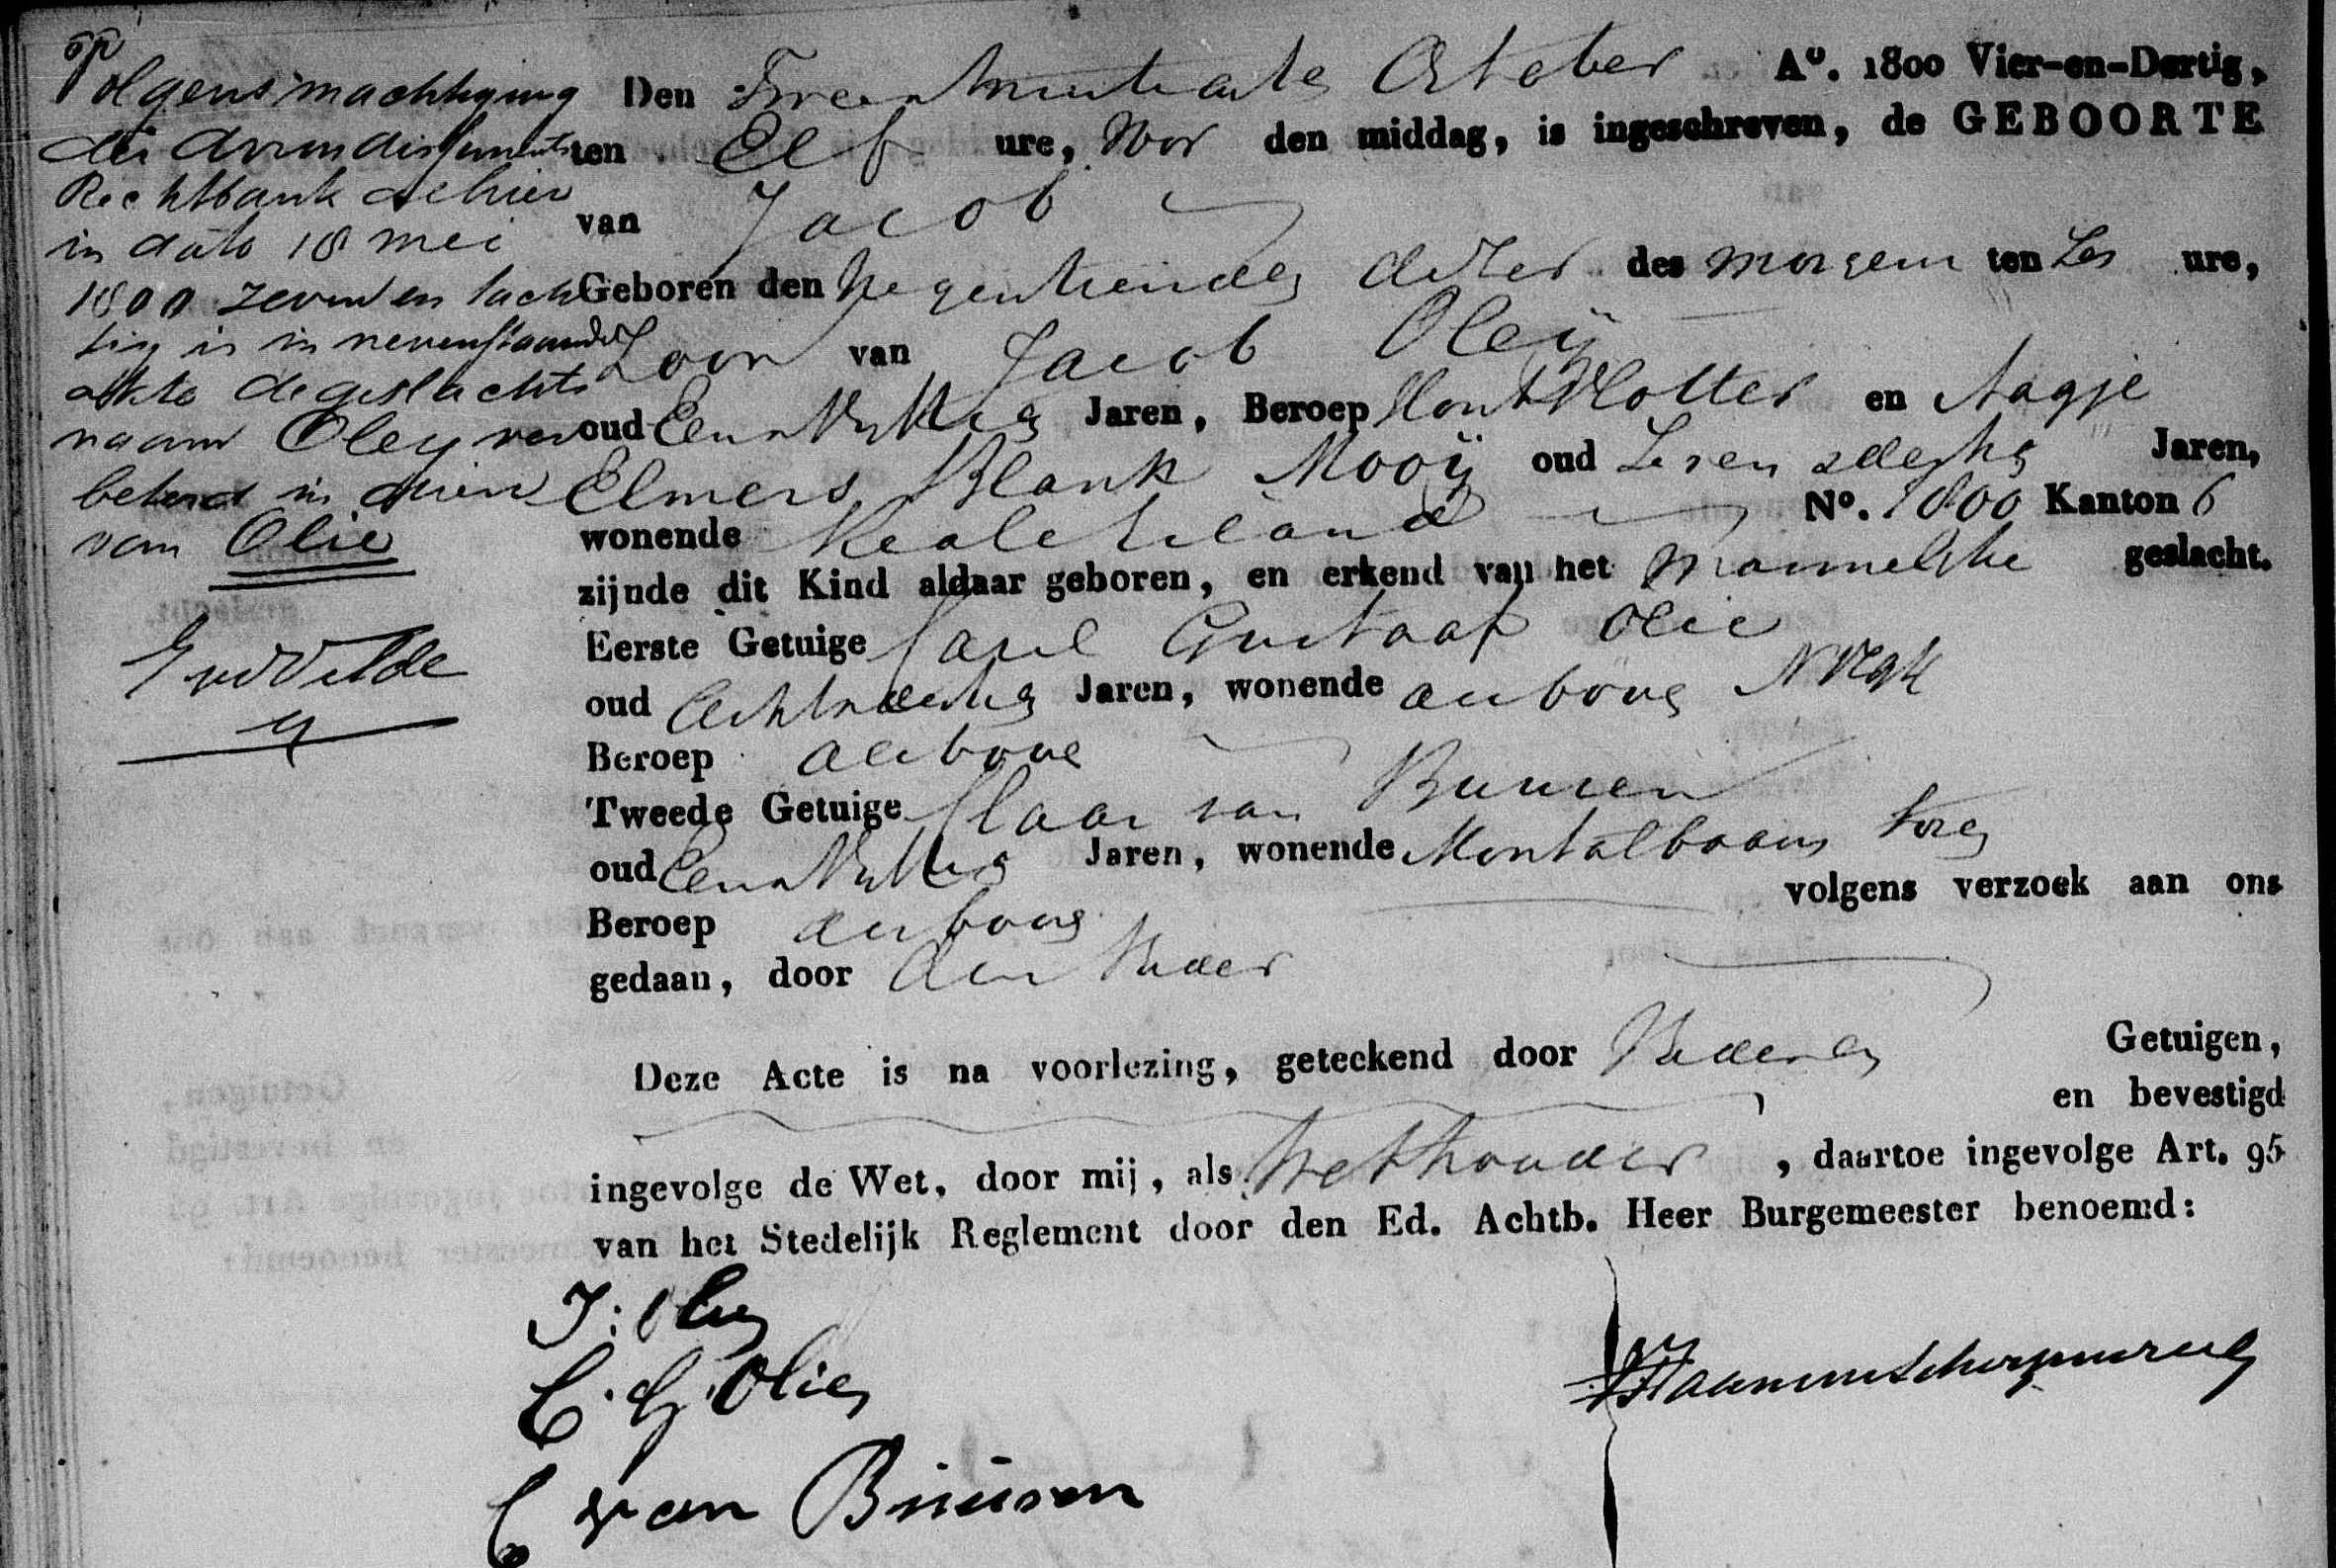 Volgens machtiging
der Arrondissements
Rechtbank alhier
in dato 18 Mei
1800 zeven en tach
tig is in nevenstaande
akte de geslachts
naam Oley ver
beterd in dien
van Olie
Den Tweentwintigste October A°. 1800 Vier-en-Dertig,
ten Elf ure, Voor den middag, is ingeschreven, de GEBOORTE
van Jacob
Geboren den Negentiende dezer des morgens ten Zes ure,
Zoon van Jacob Oleÿ
oud Eenenvyftig Jaren, Beroep Houtvlotter en Aagje
Elmers Blank Mooÿ oud Zeven dertig Jaren,
wonende Realeneiland N°. 1800 Kanton 6
zijnde dit Kind aldaar geboren, en erkend van het Mannelyke geslacht.
Eerste Getuige Carel Gustaaf Olie
oud Achtendertig Jaren, wonende alsboven
Beroep alsboven
Tweede Getuige Claas van Buuren
oud Eenenvyftig Jaren, wonende Montalbaans
volgens verzoek aan ons
Beroep alsboven
gedaan, door den Vader
Deze Acte is na voorlezing, geteekend door Vader en Getuigen,
en bevestigd
ingevolge de Wet, door mij, als Wethouder, daartoe ingevolge Art. 95
van het Stedelijk Reglement door den Ed. Achtb. Heer Burgemeester benoemd:
J: Oley
C. G. Olie
C van Buuren